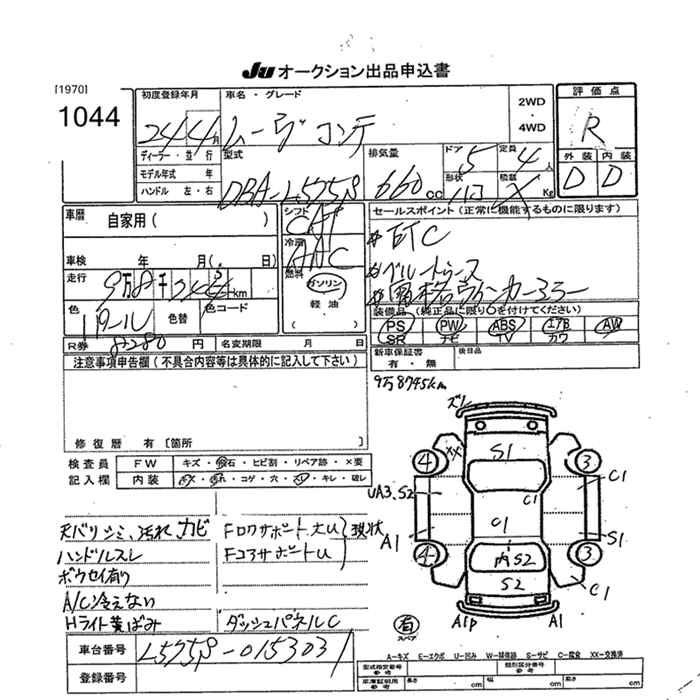 JU オークション出品申込書
[1970]
1044
初度登録年月
車名・グレード
2WD
・
4WD
評価点
24年4月
ムーヴ コンテ
R
ディーラー・並行
型式
排気量
ドア
定員
外装 内装
モデル年式 年
DBA-L575S
660cc
5
4人
D D
ハンドル 左・右
形状
積載
Kg
車歴
自家用( )
シフト
CAT
セールスポイント(正常に機能するものに限ります)
冷房
AAC
#ETC
車検 年 月( . 日)
燃料
ガソリン
軽油
走行
km
色
色替
色コード
装備品(純正品に限り○を付けてください)
PS PW ABS エアB AW
SR ナビ TV カワ
R券 8280円 名変期限 月 日
新車保証書
有・無
後日品
注意事項申告欄(不具合内容等は具体的に記入して下さい)
9万8745km
修復暦 有〔箇所 〕
検査員
記入欄
FW
キズ・飛石・ヒビ割・リペア跡・×要
内装
キズ・汚れ・コゲ・穴・・キレ・破レ
天バリシミ、汚れ カビ
ハンドルスレ
ボウセイ有り
A/C冷えない
Hライト黄ばみ
Fロワサポート大U
Fコアサポート U
現状
ダッシュパネルC
ズレ
S1
XX
4
3
C1
C1
UA3.S2
C1
A1
S1
4
3
内S2
S2
C1
有
スペア
A1P
A1
車台番号
L575S-0153031
登録番号
A-キズ E-エクボ U-凹み W-補修跡 S-サビ C-腐食 XX-交換済
型式指定番号
類別区分番号
車庫証明用
参考
長さ cm
幅 cm
高さ cm